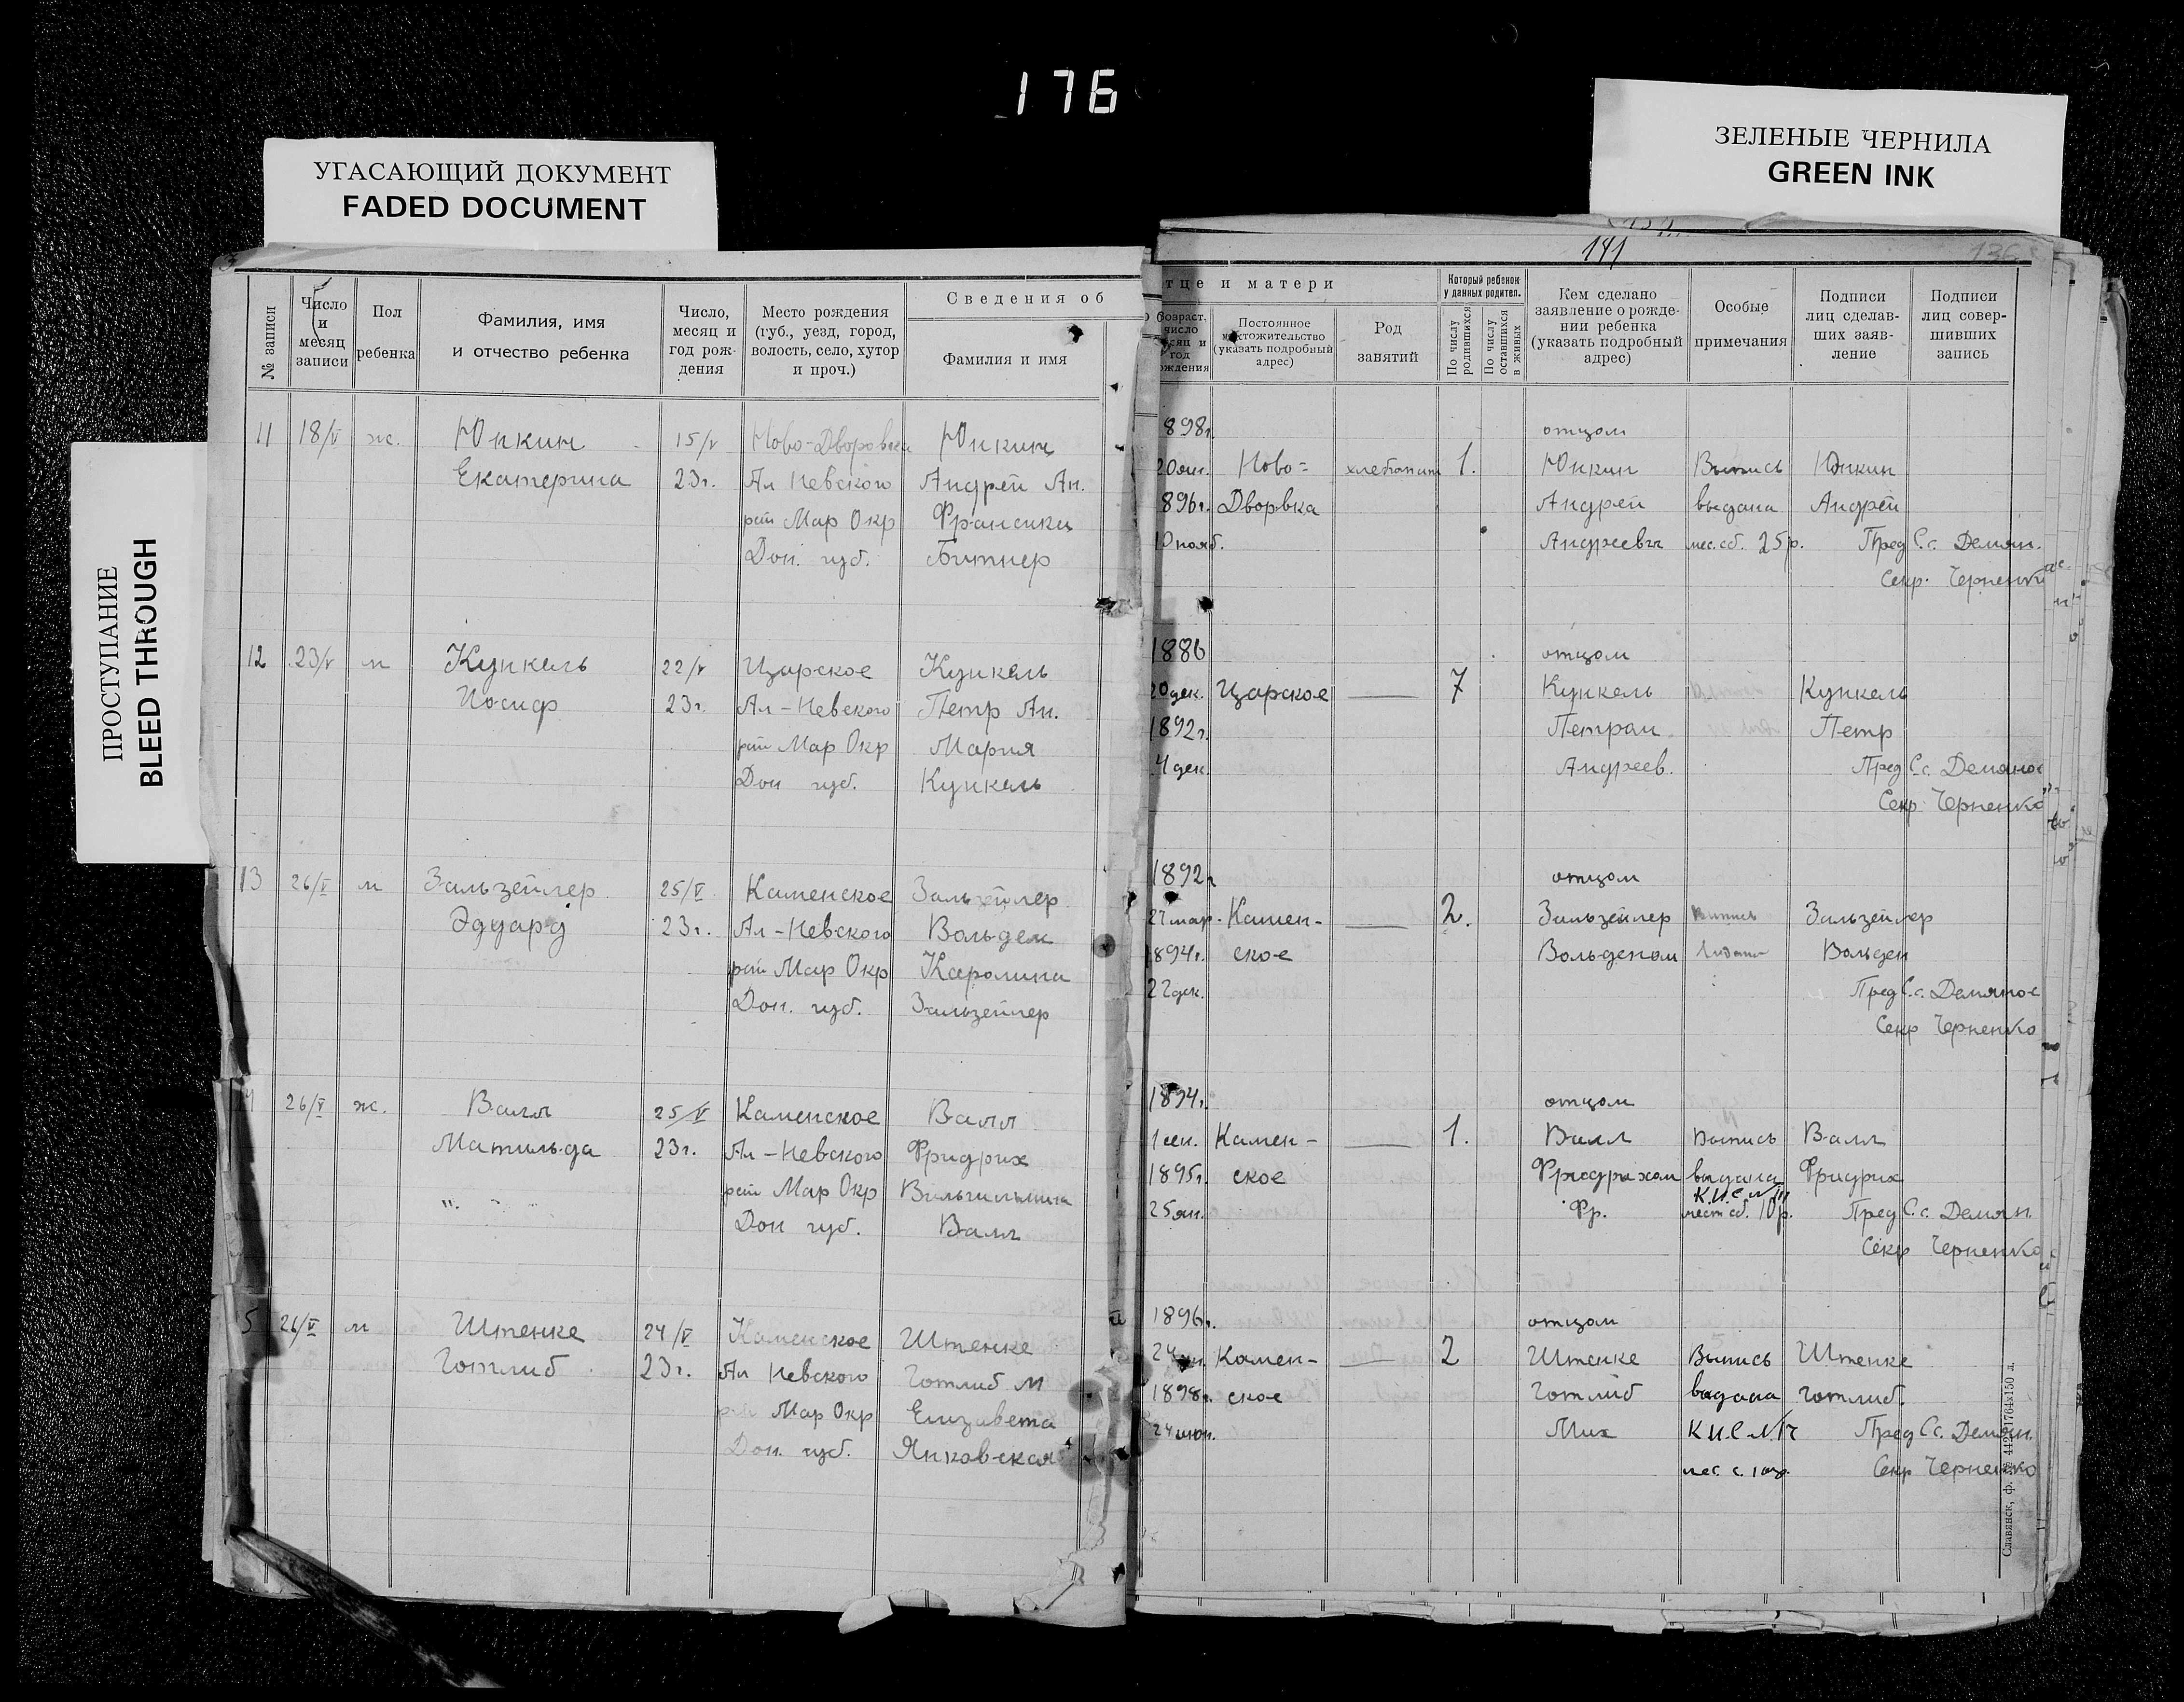 176
УГАСАЮЩИЙ ДОКУМЕНТ
FADED DOCUMENT
ЗЕЛЕНЫЕ ЧЕРНИЛА
GREEN INK
ПРОСТУПАНИЕ
BLEED THROUGH
141
136
№ записи
Число и месяц записи
Пол ребенка
Фамилия, имя и отчество ребенка
Число, месяц и год рождения
Место рождения (губ., уезд, город, волость, село, хутор и проч.)
Сведения об
Фамилия и имя
тце и матери
Возраст, число
Постоянное местожительство (указать подробный адрес)
Род занятий
Который ребенок у данных родител.
По числу родившихся
По числу оставшихся в живых
Кем сделано заявление о рождении ребенка (указать подробный адрес)
Особые примечания
Подписи лиц сделавших заявление
Подписи лиц совершивших запись
11 18/V ж. Юнкин 15/V Ново-Дворовка Юнкин 898г. отцом
Екатерина 23г. Ал Невского Андрей Ан. 20 Ново- 1. Юнкин Выпись Юнкин
рай Мар Окр Франсика 896г. Дворвка Андрей выдана Андрей
Дон. губ. Битнер 10 нояб. Андреевич мес. сб. 25р. Пред С.с. Демян.
Секр. Черненко
12 23/V м Кункель 22/V Царское Кункель 1886 отцом
Иосиф 23г. Ал-Невского Петр Ан. 20 дек. Царское — 7 Кункель Кункель
рай Мар Окр Мария 1892г. Петром Петр
Дон губ. Кункель 4 дек. Андреев. Пред С.с. Демяно
Секр. Черненко
13 26/V м Зальзейлер 25/V Каменское Зальзейлер 1892г отцом
Эдуард 23г. Ал-Невского Вольдем 27 мар. Камен- — 2. Зальзейлер Выпись Зальзейлер
рай Мар Окр Каролина 1894г. ское Вольденом Выдана Вольден
Дон. губ. Зальзейлер 22 дек. Пред С.с. Демяно
Секр Черненко
26/V ж. Валл 25/V Каменское Валл 1894г. отцом
Матильда 23г. Ал-Невского Фридрих 1 сен. Камен- — 1. Валл Выпись Валл
рай Мар Окр Вильгильмина 1895г. ское Фридрихом выдана Фридрих
Дон губ. Валл 25 ян. Фр. мест сб. 10р. Пред С.с. Демян.
Секр Черненко
5 26/V м Штенке 24/V Каменское Штенке 1896г. отцом
Готлиб 23г. Ал Невского Готлиб М 24 Камен- — 2 Штенке Выпись Штенке
рай Мар Окр Елизавета 1898г. ское Готлиб выдана Готлиб.
Дон. губ. Янковская 24 июн. Мих К.И.С. Пред С.с. Демян.
Секр Черненко